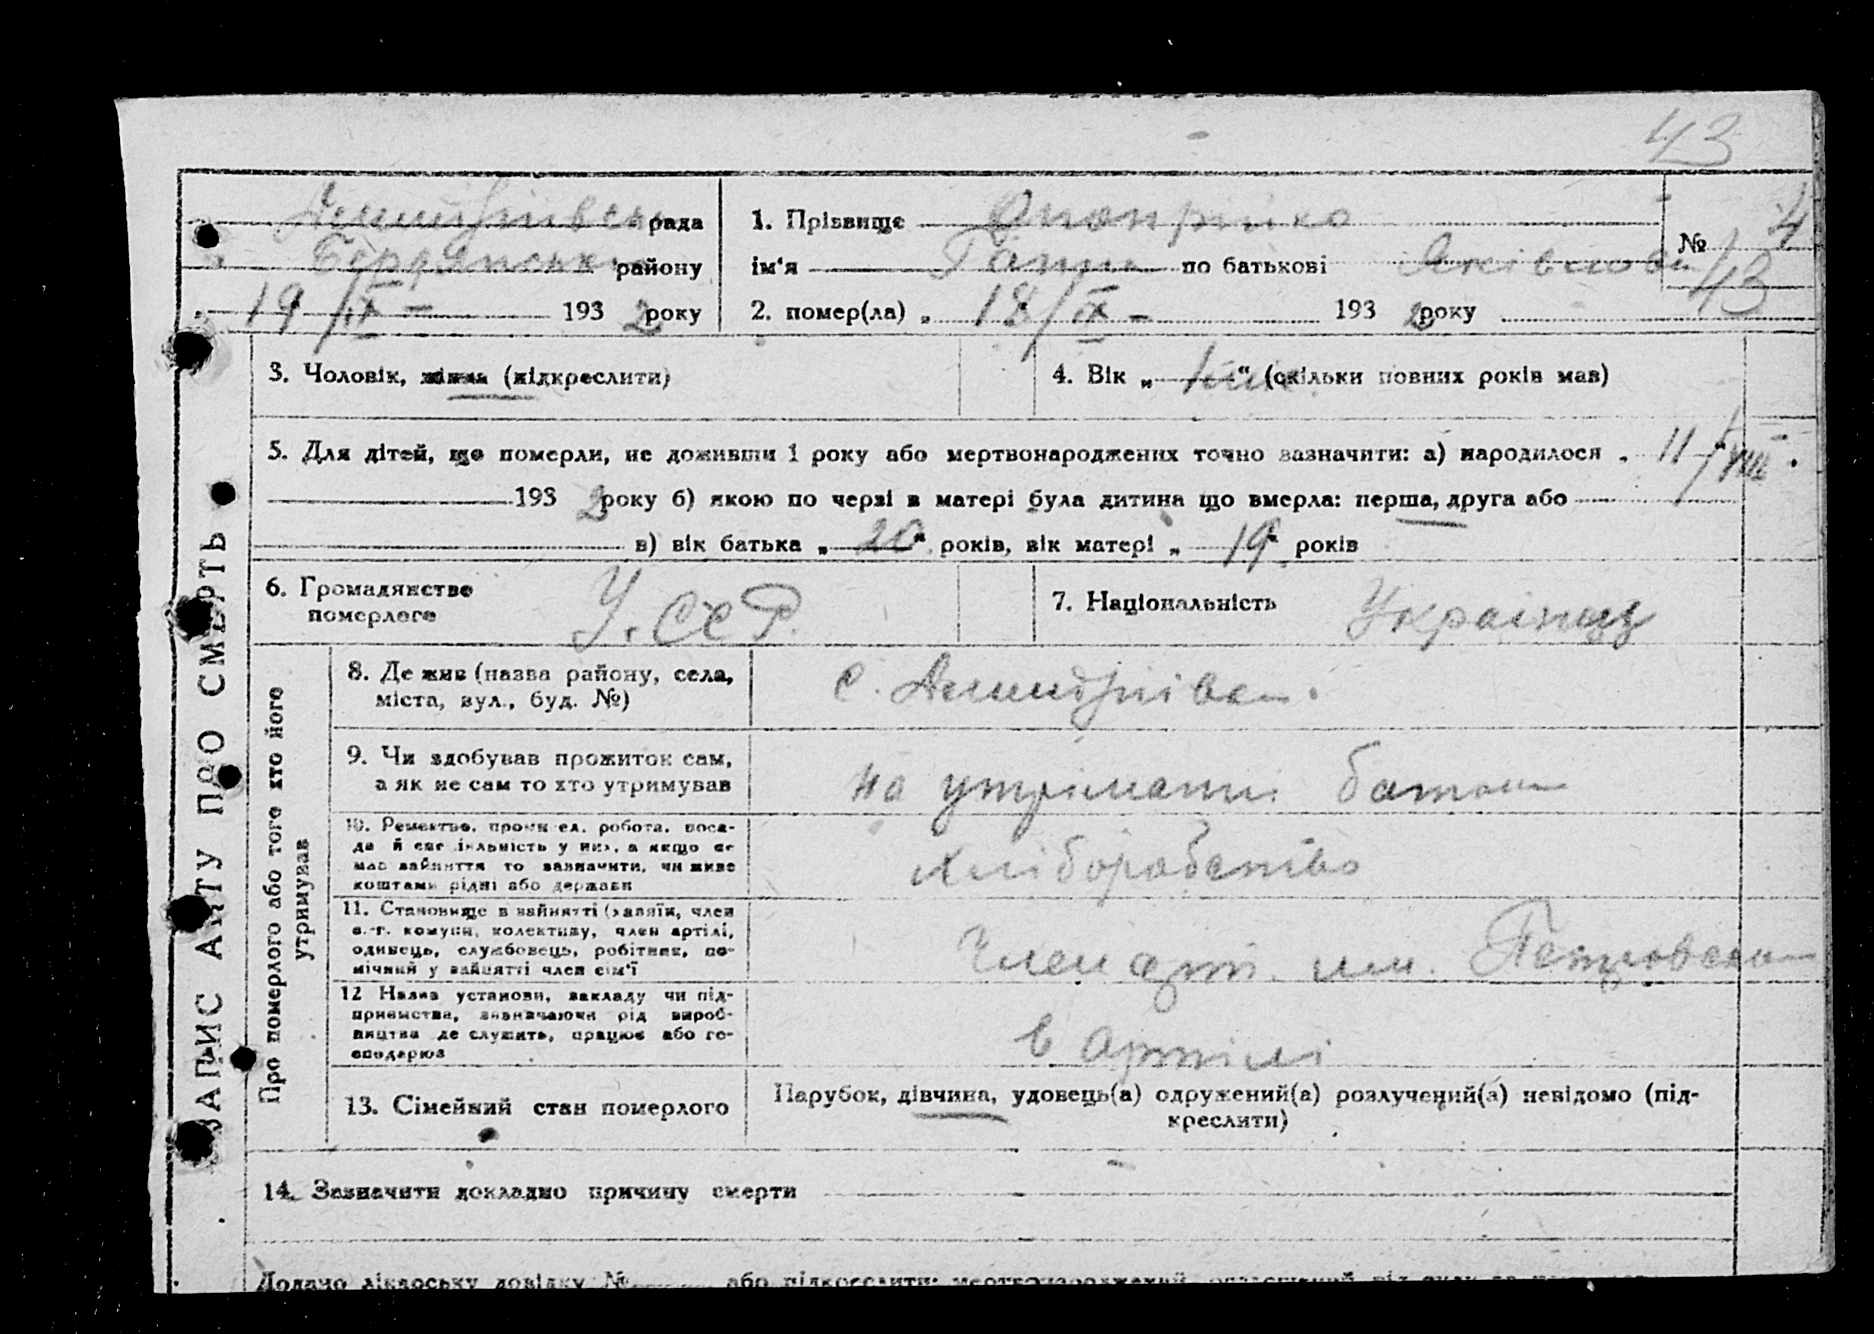 43
рада
1. Прізвище
№ 4
району
ім'я Ганна по батькові Яківловна
43
19/IX – 193 2 року
2. помер(ла) „ 18/IX – 193 2 року
ЗАПИС АКТУ ПРО СМЕРТЬ
3. Чоловік, жінка (підкреслити)
4. Вік „ " (скільки повних років мав)
5. Для дітей, що померли, не доживши 1 року або мертвонароджених точно зазначити: а) народилося „ 11/VIII.
193 2 року б) якою по черзі в матері була дитина що вмерла: перша, друга або
в) вік батька „ 20 " років, вік матері „ 19 " років
6. Громадянство
померлого
У.ССР.
7. Національність
Про померлого або того хто його
утримував
8. Де жив (назва району, села,
міста, вул., буд. №)
с.
9. Чи здобував прожиток сам,
а як не сам то хто утримував
на утриманні
10. Ремество, промисел, робота, поса-
да й спеціяльність у них, а якщо не
мав зайняття то зазначити, чи живе
коштами рідні або держави
хліборобство
11. Становище в зайнятті (хазяїн, член
с.-г. комуни, колективу, член артілі,
одинець, службовець, робітник, по-
мічний у зайнятті член сім'ї
Член арт. им.
12 Назва установи, закладу чи під-
приємства, зазначаючи рід вироб-
ництва де служить, працює або го-
сподарює
в артілі
13. Сімейний стан померлого
Парубок, дівчина, удовець(а) одружений(а) розлучений(а) невідомо (під-
креслити)
14. Зазначити докладно причину смерти
Додано лікарську довідку № або підкреслити: мертвонароджений,